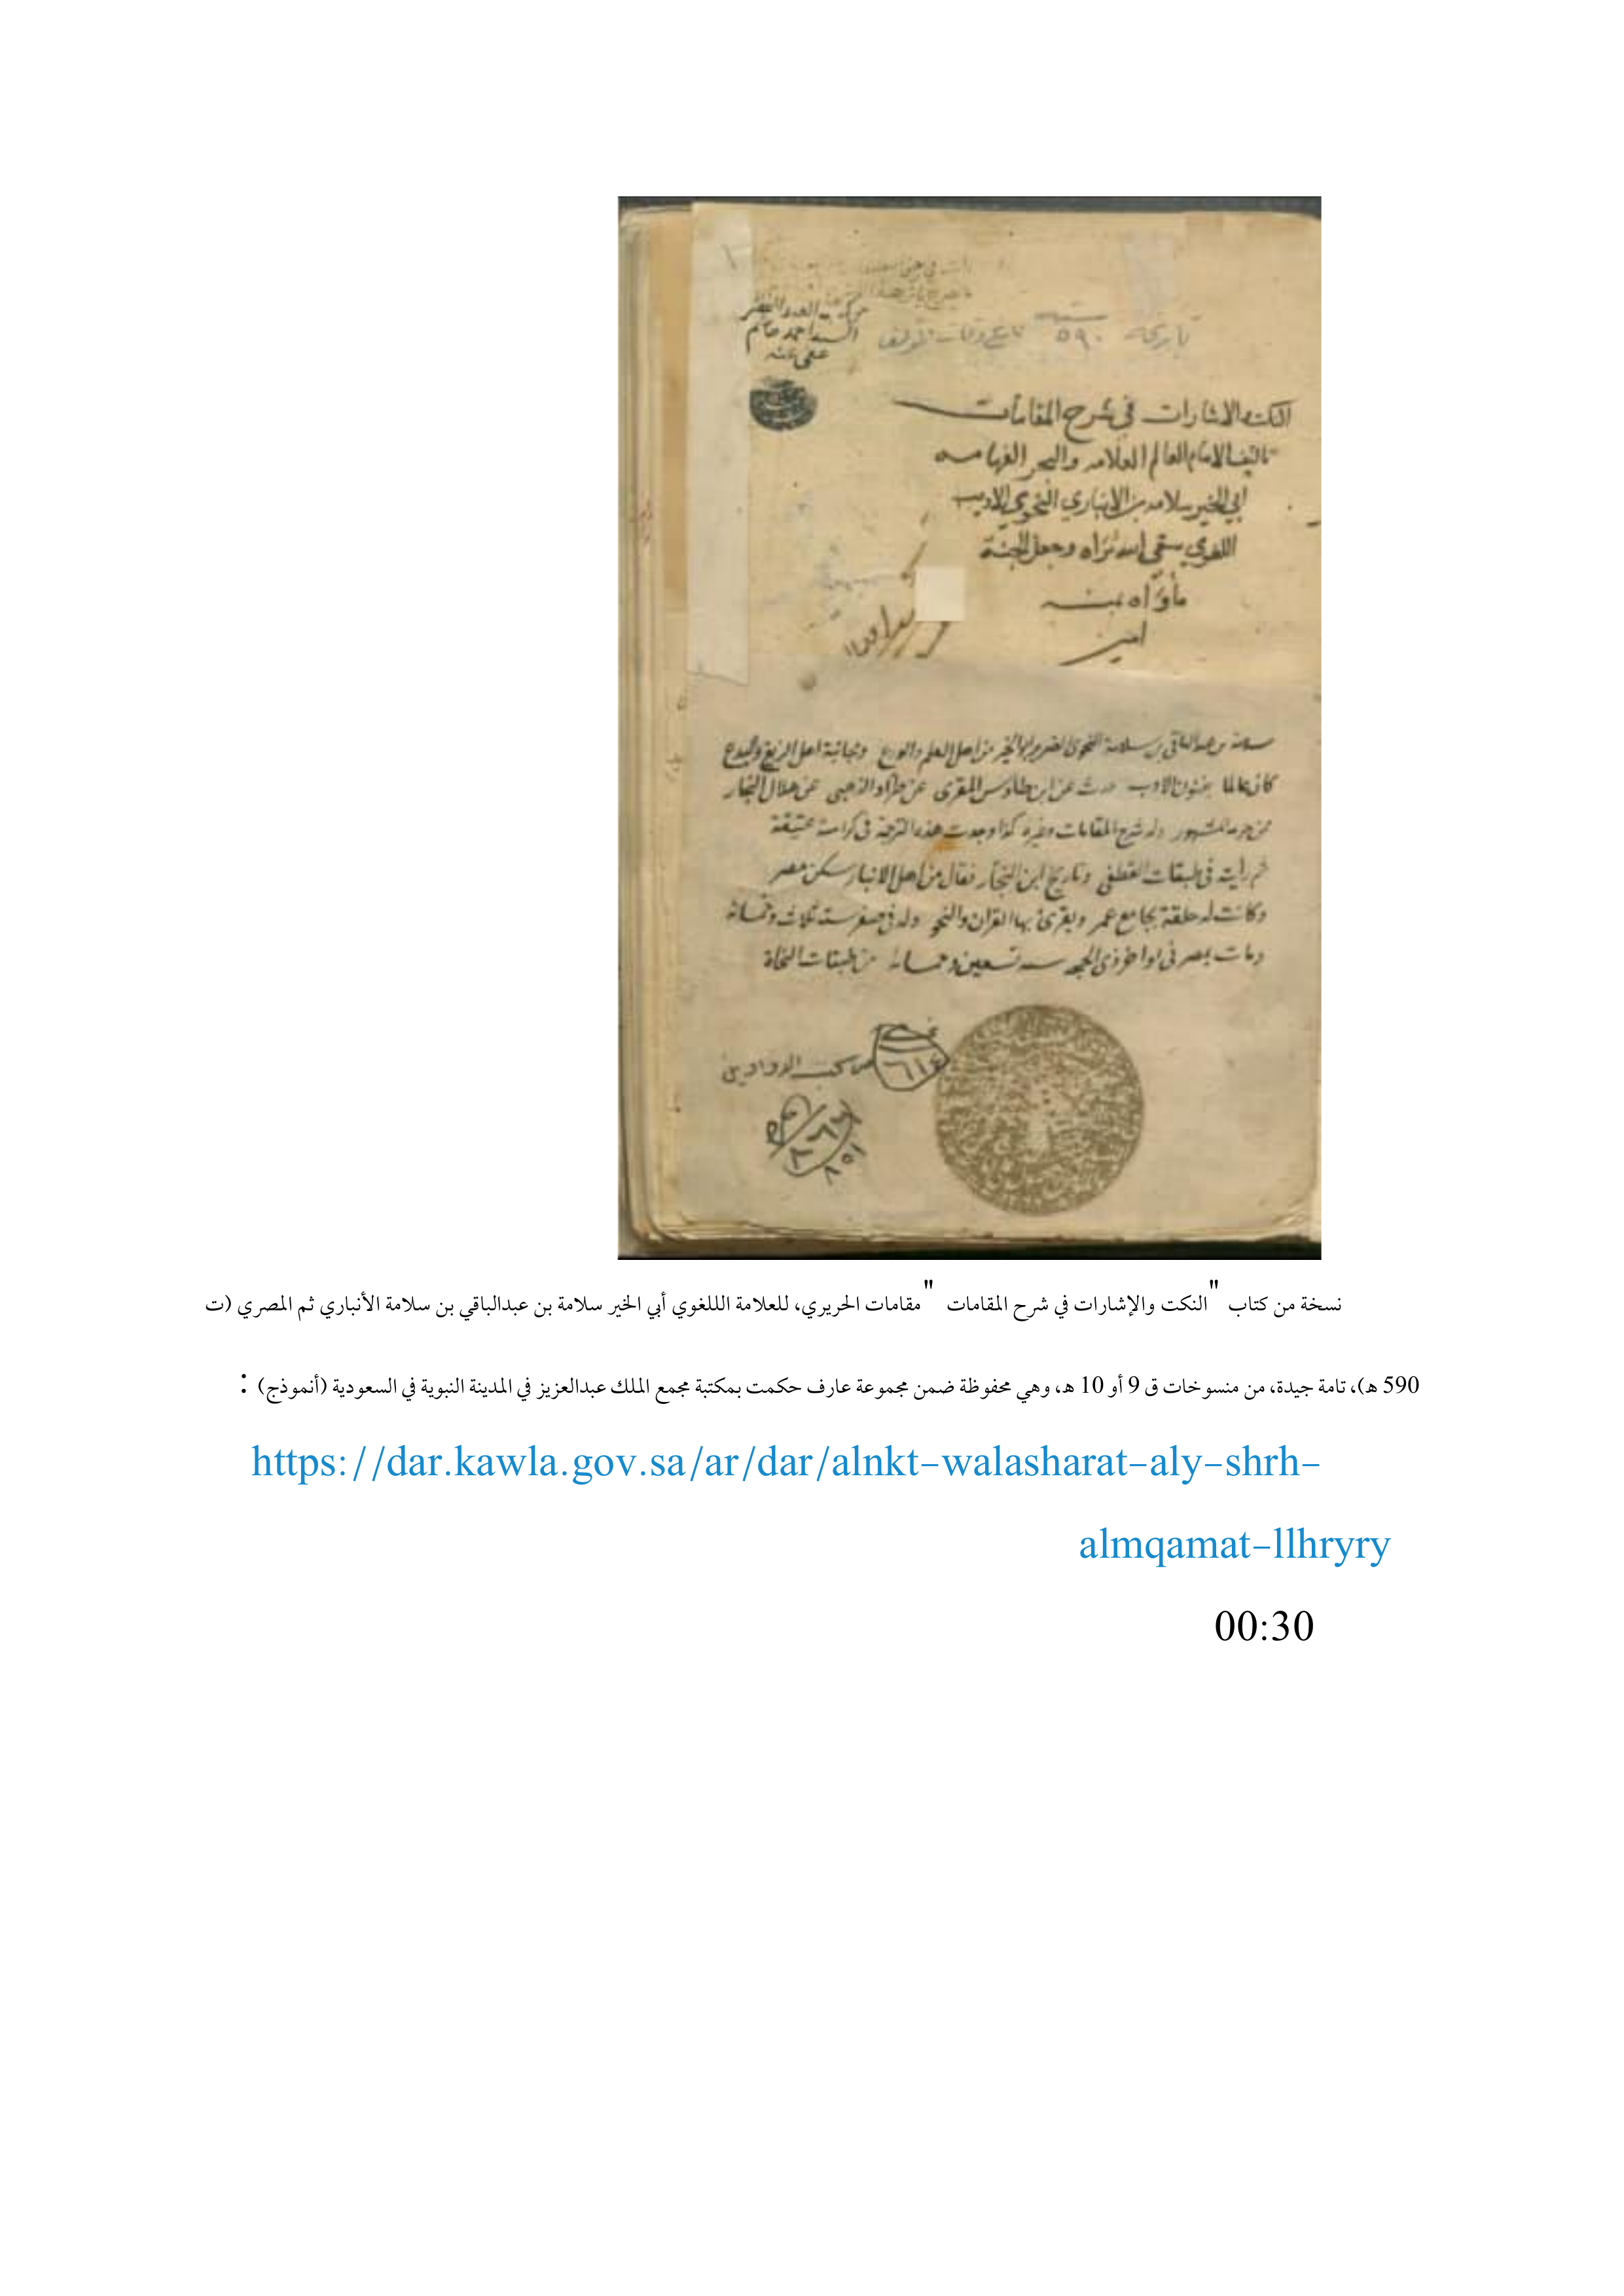 تاريخه سنة ٥٩٠ تاريخ وفات المؤلف
السيد احمد
عفى عنه
النكت والاشارات في شرح المقامات
تاليف الامام العالم العلامه والبحر الفهامه
ابي الخير سلامه بن الانباري النحوي الاديب
اللغوي سقى الله ثراه وجعل الجنة
مأواه بمنه
امين
سلامة بن عبد الباقي بن سلامة النحوى الضرير ابو الخير من اهل العلم والورع ومجانبة اهل الزيغ والبدع
كان عالما بفنون الادب حدث عن ابن طاوس المقرى عن طراد الزينبى عن هلال الحفار
وله شرح المقامات وغيره كذا وجدت هذه الترجمة في كراسة عتيقة
ثم رايته في طبقات القفطى وتاريخ ابن النجار فقال من اهل الانبار سكن مصر
وكانت له حلقة بجامع عمر ويقرئ بها القران والنحو ولد في صفر سنة ثلاث وخمسمائة
ومات بمصر في اواخر ذى الحجه سنه تسعين وخمسمائة من طبقات النحاة
من كتب الدواوين
نسخة من كتاب "النكت والإشارات في شرح المقامات "مقامات الحريري، للعلامة الللغوي أبي الخير سلامة بن عبدالباقي بن سلامة الأنباري ثم المصري (ت
590 هـ)، تامة جيدة، من منسوخات ق 9 أو 10 هـ، وهي محفوظة ضمن مجموعة عارف حكمت بمكتبة مجمع الملك عبدالعزيز في المدينة النبوية في السعودية (أنموذج) :
https://dar.kawla.gov.sa/ar/dar/alnkt-walasharat-aly-shrh-
almqamat-llhryry
00:30